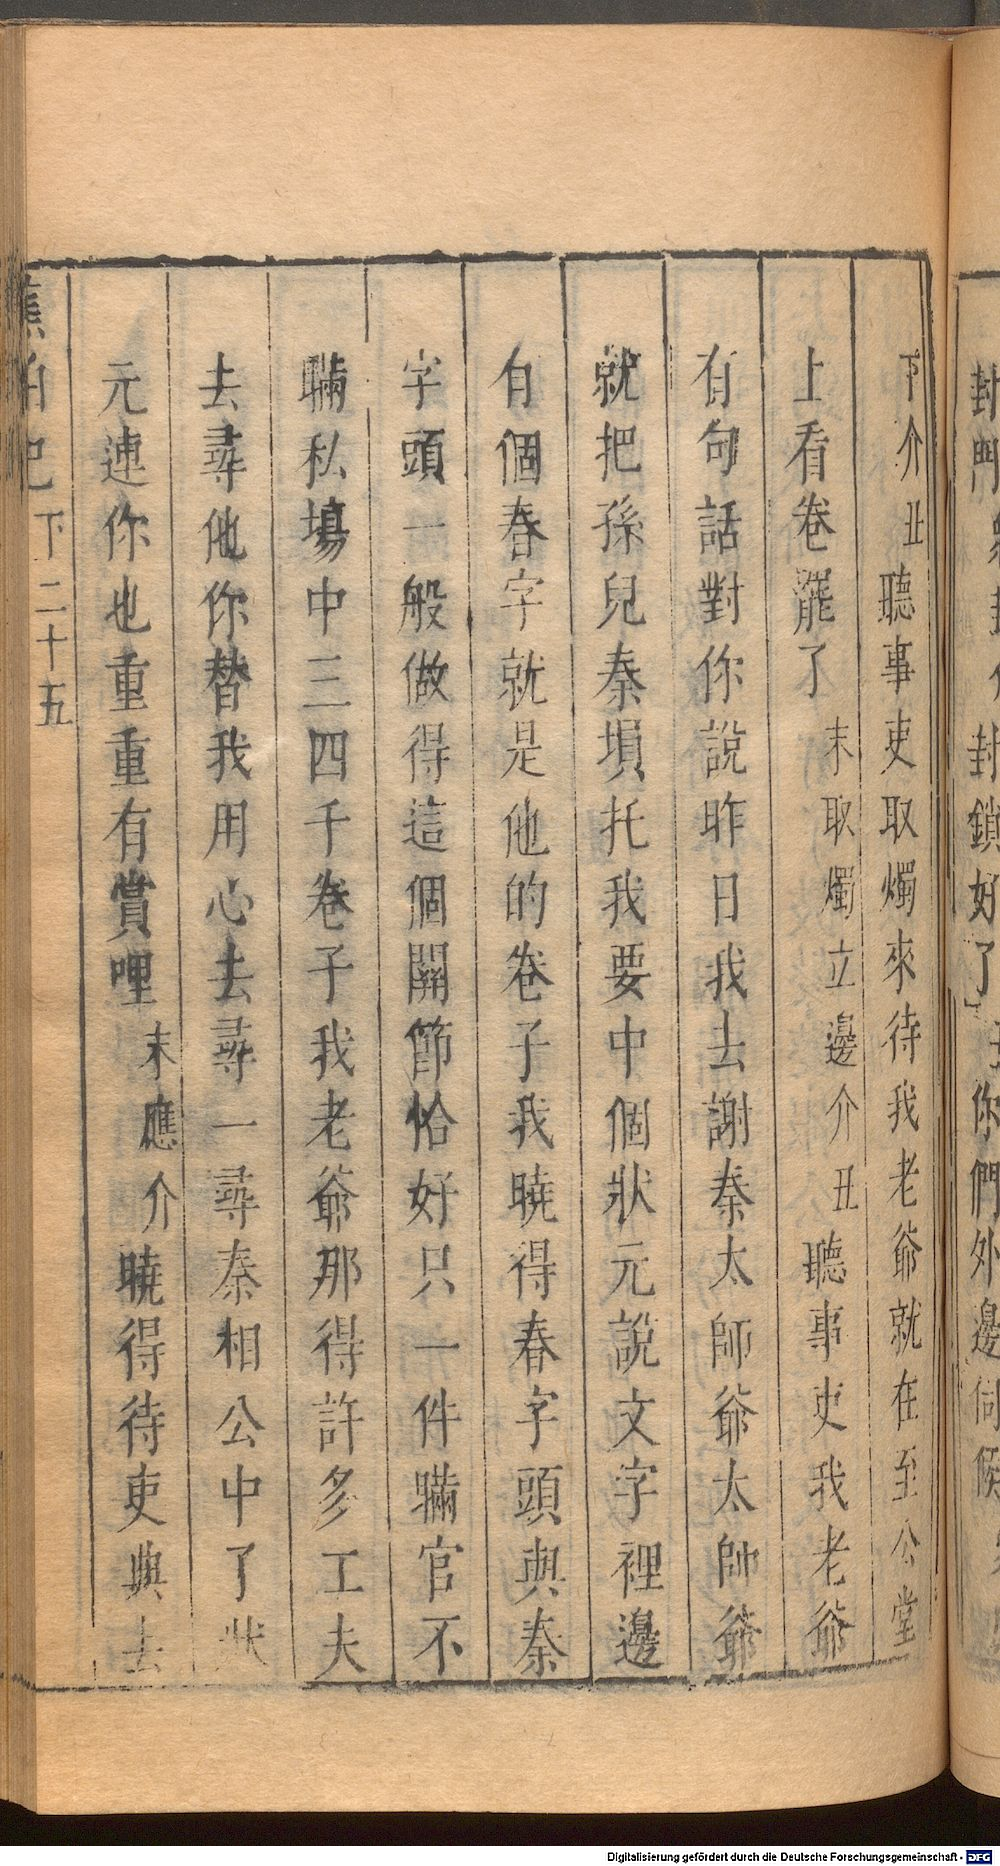 下介丑聽事吏取燭來待我老爺就在至公堂
上看卷罷了末取燭立邊介丑聽事吏我老爺
有句話對你說昨日我去謝秦太師爺太師爺
就把孫兒秦塤托我要中個狀元說文字裡邊
有個春字就是他的卷子我曉得春字頭與秦
字頭一般做得這個關節恰好只一件瞞官不
瞞私場中三四千卷子我老爺那得許多工夫
去尋他你替我用心去尋一尋秦相公中了狀
元連你也重重有賞哩末應介曉得待吏典去
蕉帕記 下二十五
封鎖好了
你們外邊伺候
Digitalisierung gefördert durch die Deutsche Forschungsgemeinschaft - DFG